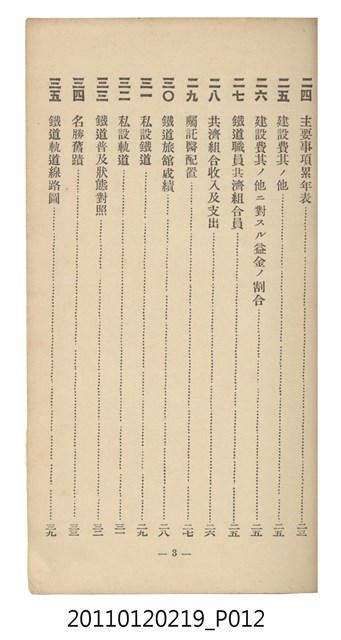 二四 主要事項累年表 二三
二五 建設費其ノ他 二五
二六 建設費其ノ他ニ對スル益金ノ割合 二五
二七 鐵道職員共濟組合員 二五
二八 共濟組合收入及支出 二六
二九 囑託醫配置 二七
三〇 鐵道旅館成績 二八
三一 私設鐵道 二九
三二 私設軌道 三一
三三 鐵道普及狀態對照 三二
三四 名勝舊蹟 三三
三五 鐵道軌道線路圖 三九
— 3 —
20110120219_P012